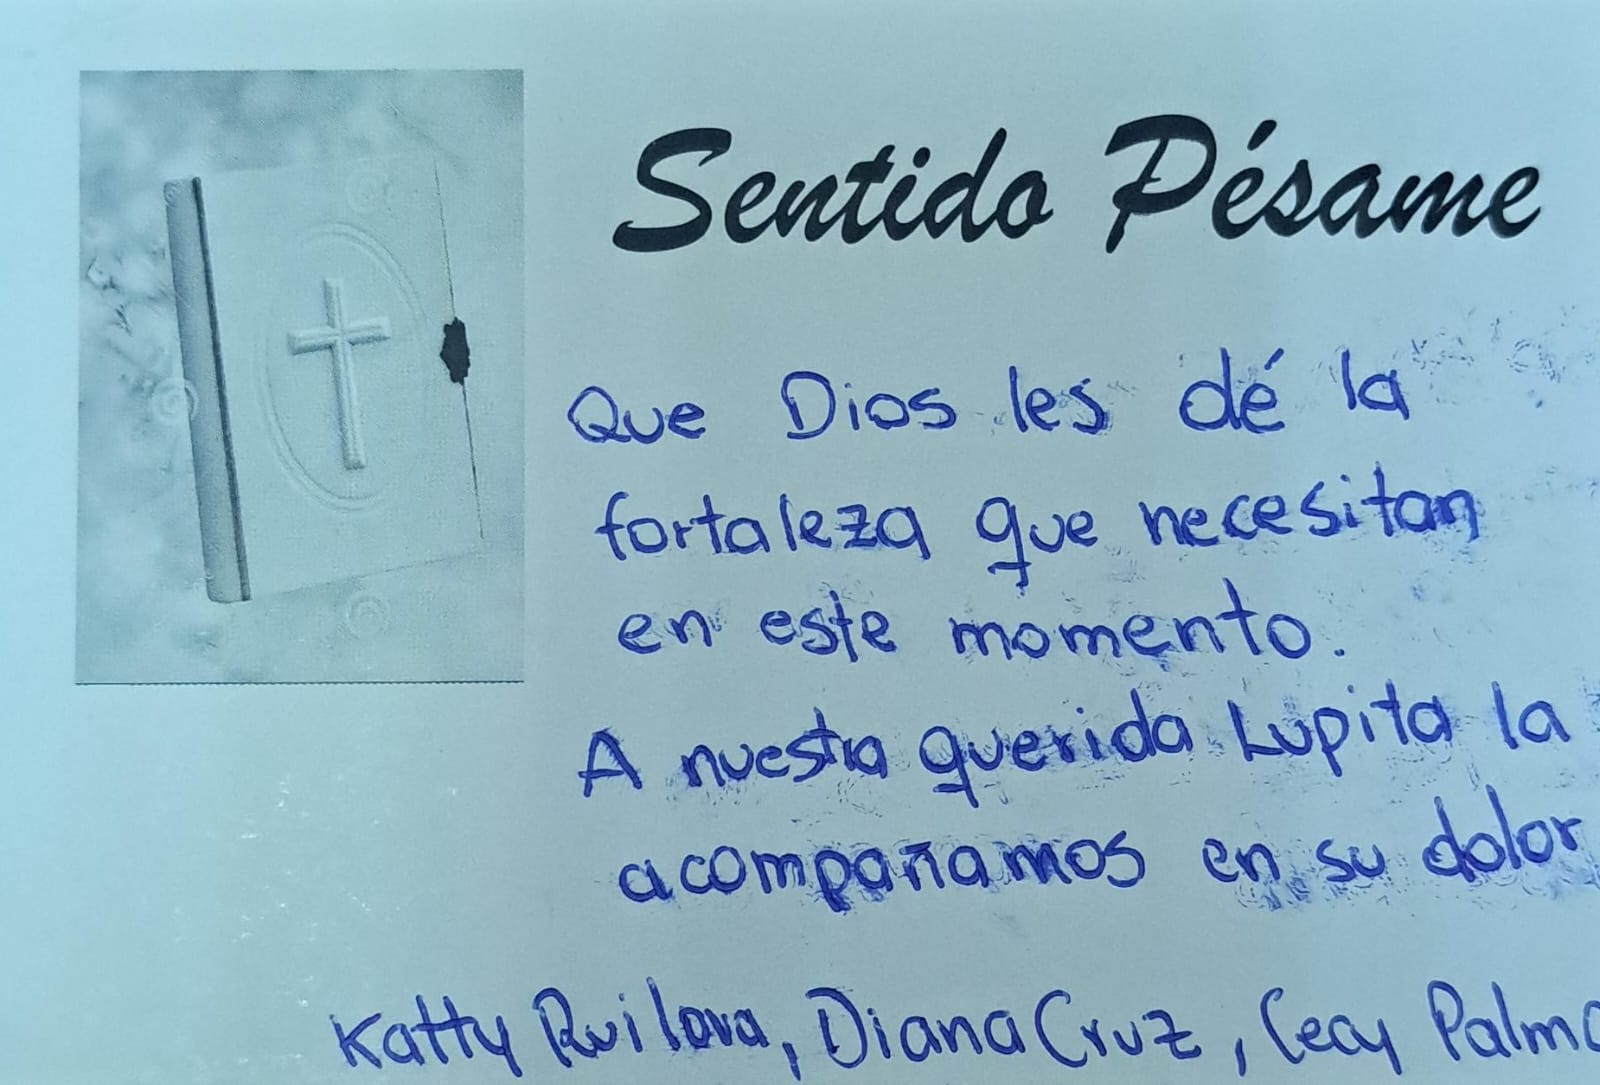 Sentido Pésame
Que Dios les dé la
fortaleza que necesitan
en este momento.
A nuestra querida Lupita la
acompañamos en su dolor
Katty Ruilova, Diana Cruz, Cecy Palma